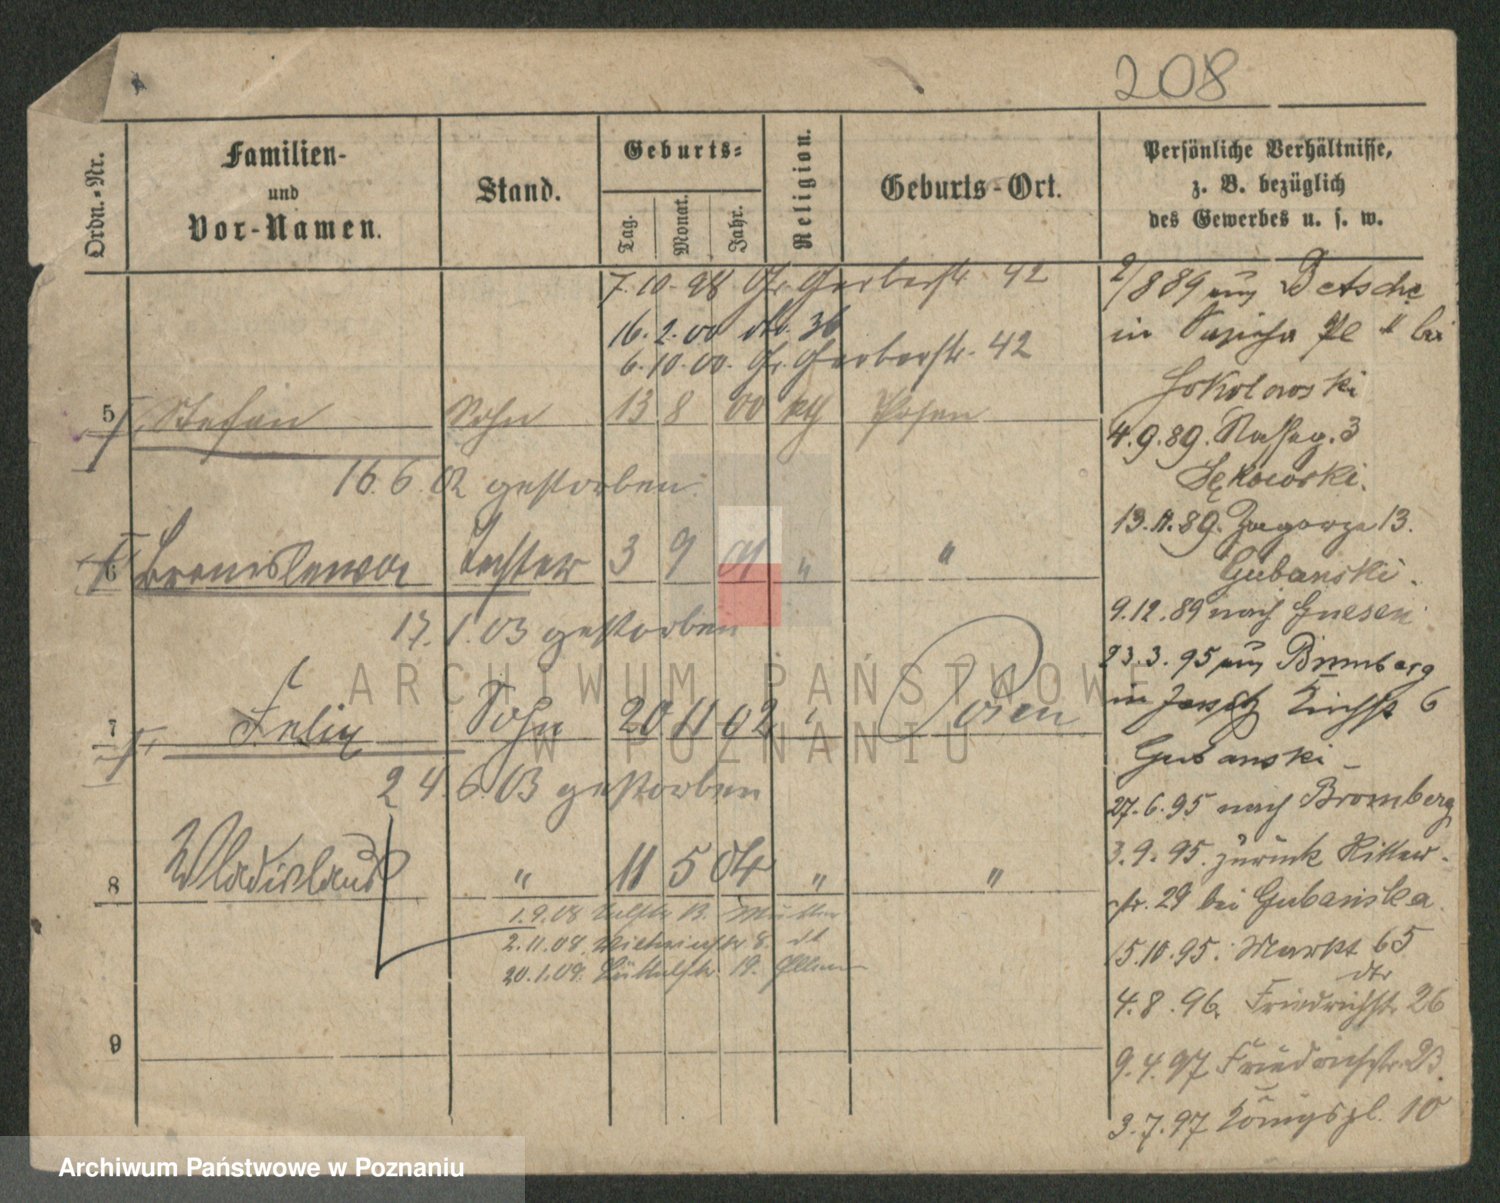 208
Ordn.-Nr.
Familien-
und
Vor-Namen.
Stand.
Geburts-
Tag.
Monat.
Jahr.
Religion.
Geburts-Ort.
Persönliche Verhältnisse,
z. B. bezüglich
des Gewerbes u. s. w.
7.10.98 Gr. Gerberstr. 42
16.2.00 dto. 36
6.10.00. Gr. Gerberstr. 42
5 Stefan Sohn 13 8 00 Posen
16.6.02 gestorben.
6 Bronislawa Tochter 3 9 01 " "
17.1.03 gestorben
7 Felix Sohn 20 11 02 " Posen
24.6.03 gestorben
8 Wladislaus " 11 5 04 " "
1.9.08 13. Mutter
2.11.08. 8. dt
20.1.09. 19.
9
2/8 89 aus Betsche
in bei
Sokolowski
4.9.89. 3
Sękowski.
13.11.89. Zagorze 13.
Gubanski.
9.12.89 nach Gnesen
23.3.95 aus Bromberg
in Jersitz Kirchstr 6
Gubanski -
27.6.95 nach Bromberg
3.9.95. zurück Ritter-
str. 29 bei Gubanska.
15.10.95. Markt 65
dto
4.8.96. Friedrichstr. 26
9.4.97 Friedrichstr. 23.
3.7.97 Königspl. 10
ARCHIWUM PAŃSTWOWE
W POZNANIU
Archiwum Państwowe w Poznaniu